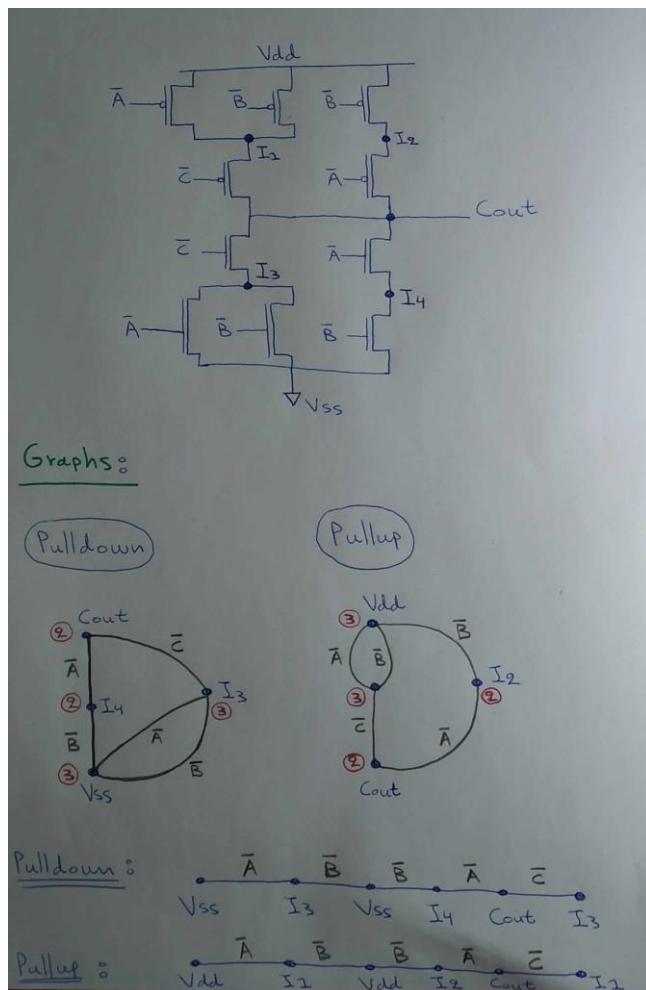 Vdd
A̅ B̅ B̅
I1 I2
C̅ A̅
Cout
C̅ A̅
I3 I4
A̅ B̅ B̅
Vss
Graphs:
Pulldown Pullup
Cout Vdd
2 C̅ 3 B̅
A̅ A̅ B̅
2 I4 I3 3 3 I2 2
B̅ A̅ C̅ A̅
3 B̅ 2
Vss Cout
Pulldown: A̅ B̅ B̅ A̅ C̅
Vss I3 Vss I4 Cout I3
Pullup: A̅ B̅ B̅ A̅ C̅
Vdd I1 Vdd I2 Cout I1